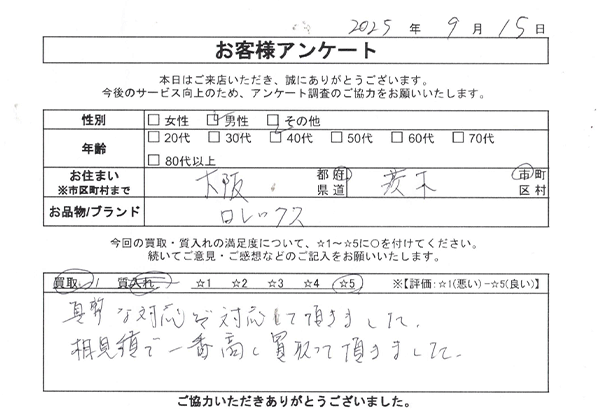 2025年 9月 15日
お客様アンケート
本日はご来店いただき、誠にありがとうございます。
今後のサービス向上のため、アンケート調査のご協力をお願いいたします。
性別 □ 女性 □ 男性 □ その他
年齢 □ 20代 □ 30代 □ 40代 □ 50代 □ 60代 □ 70代
□ 80代以上
お住まい ※市区町村まで 大阪 都府県道 茨木 市町区村
お品物/ブランド ロレックス
今回の買取・質入れの満足度について、☆1～☆5に○を付けてください。
続いてご意見・ご感想などのご記入をお願いいたします。
買取 / 質入れ ☆1 ☆2 ☆3 ☆4 ☆5 ※【評価:☆1(悪い)-☆5(良い)】
真摯な対応で対応して頂きました。
相見積で一番高く買取って頂きました。
ご協力いただきありがとうございました。